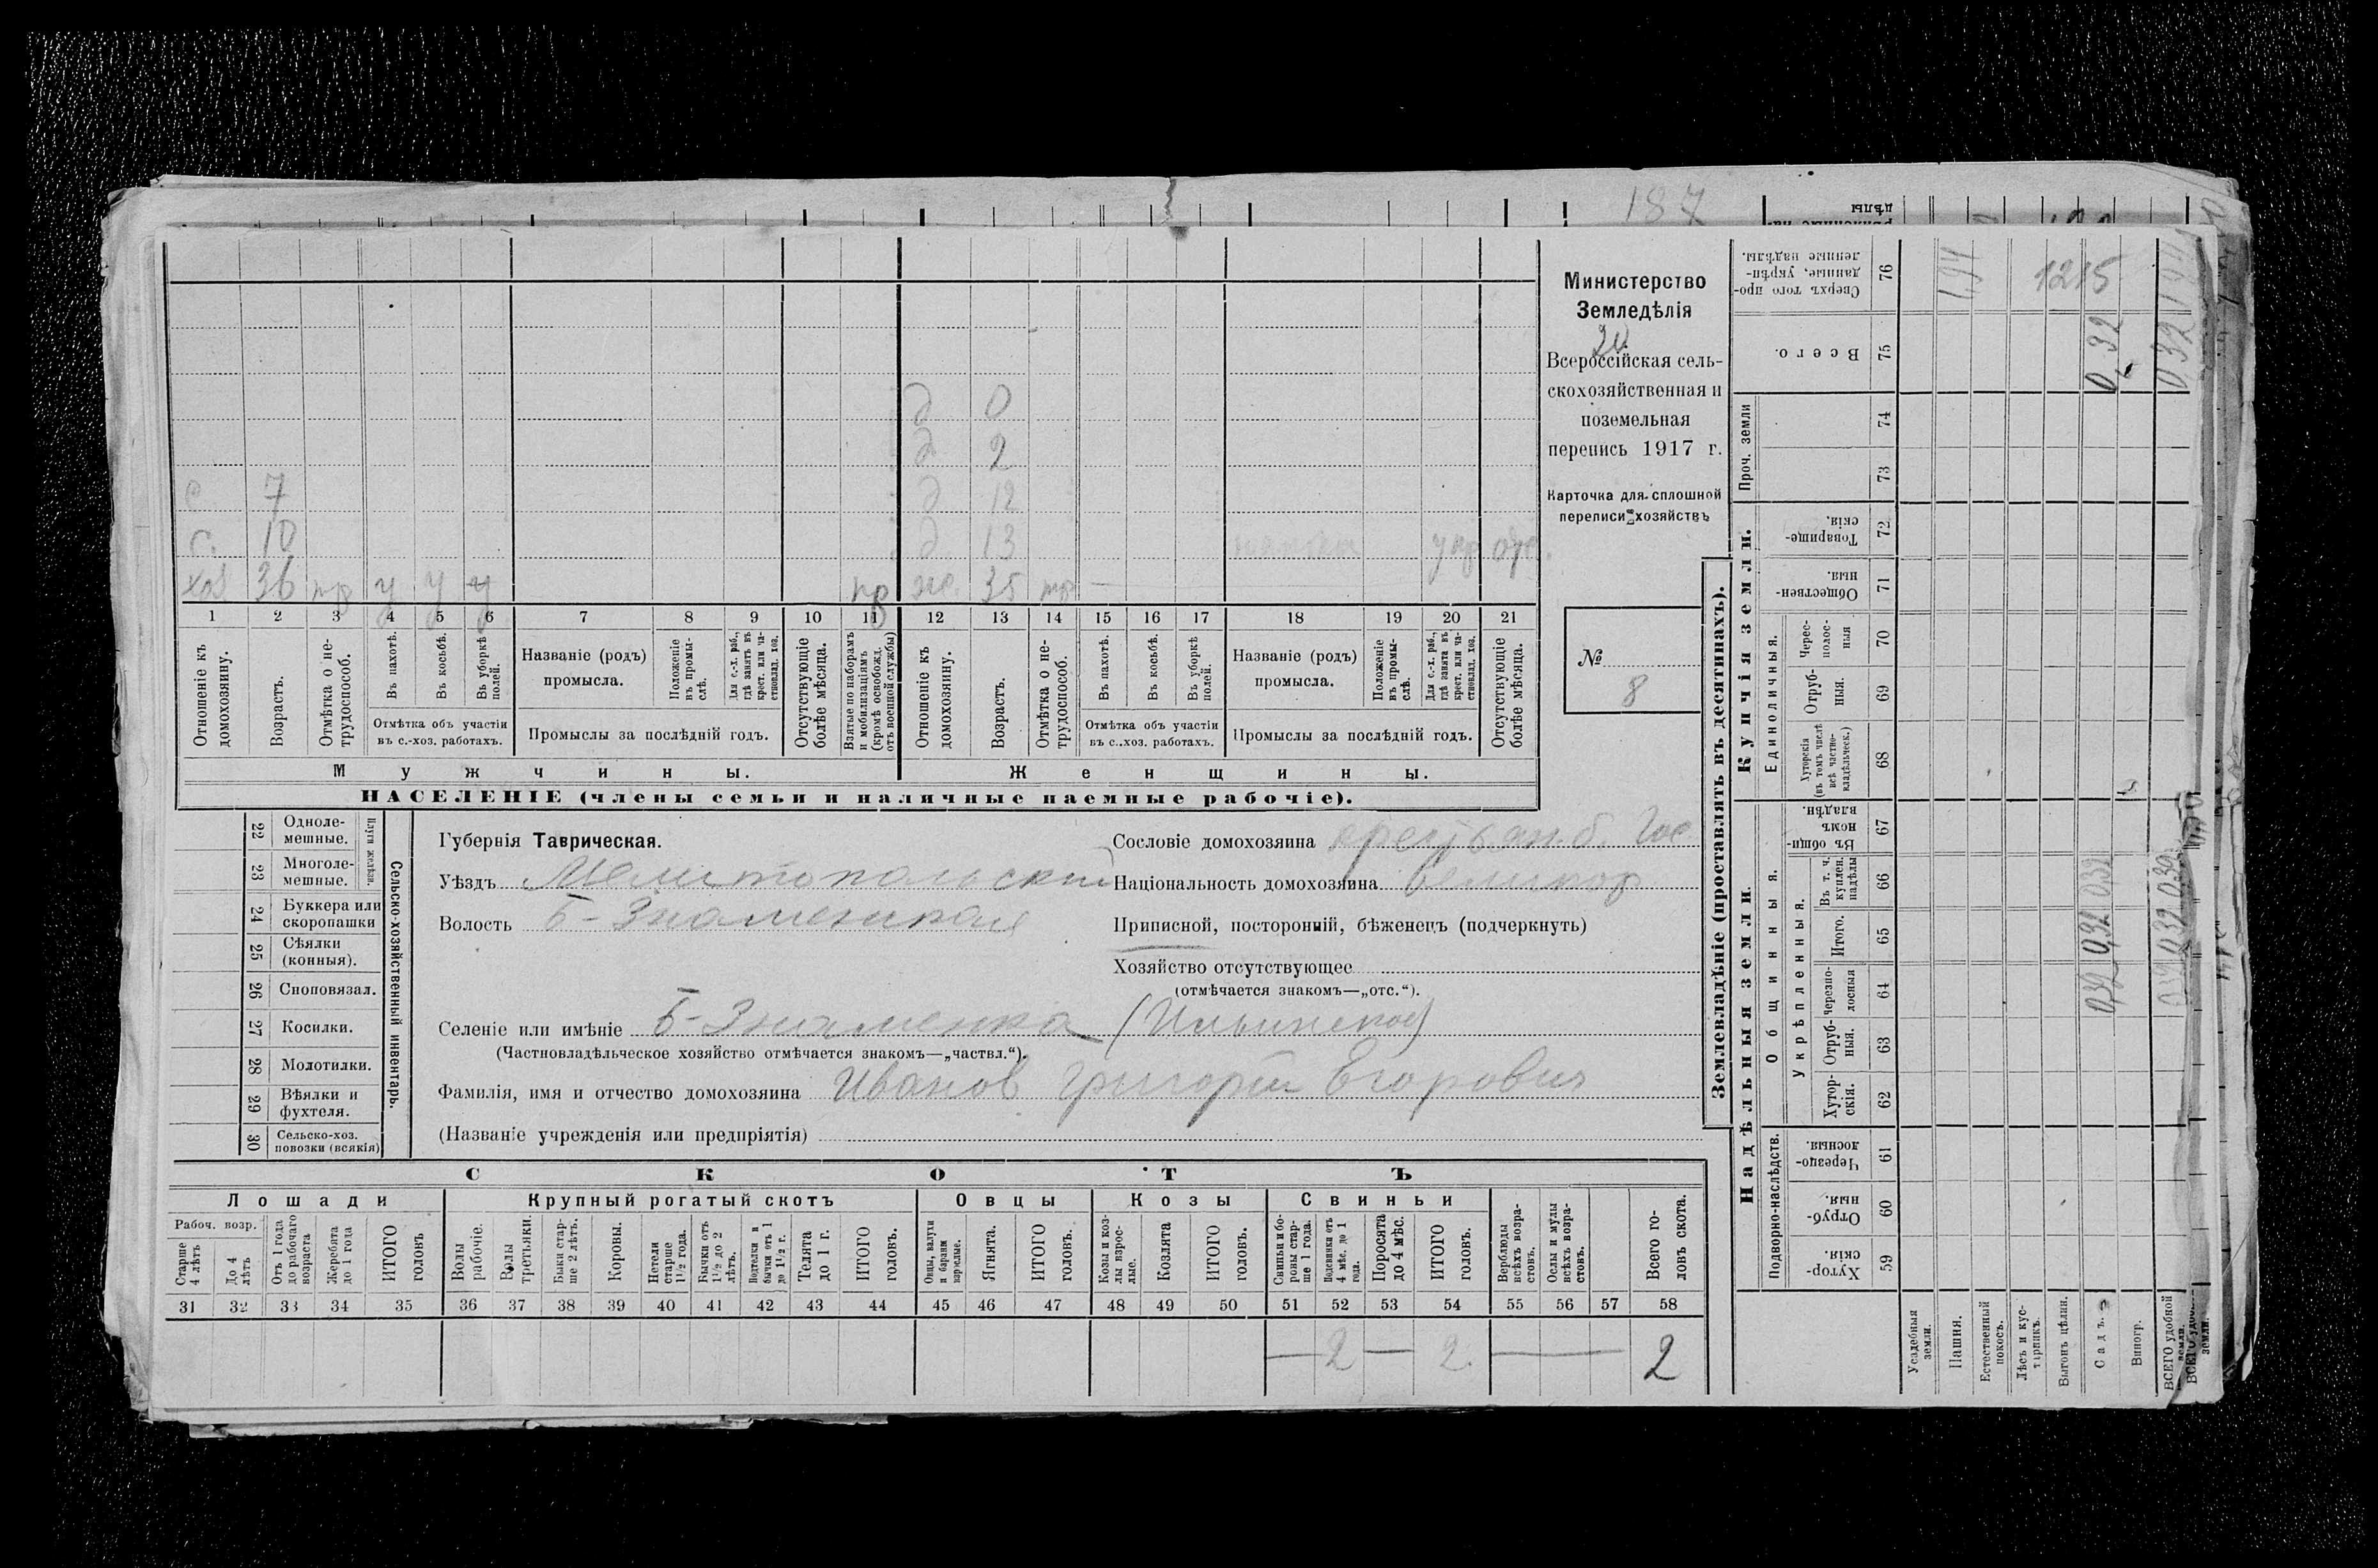 187
Министерство
Земледѣлія
Всероссійская сель-
скохозяйственная и
поземельная
перепись 1917 г.
Карточка для сплошной
переписи хозяйствъ
№
8
д 0
д 2
с 7 д 12
с. 10 д 13
хоз 36 пр у у у пр ж. 35 пр —
1 2 3 4 5 6 7 8 9 10 11 12 13 14 15 16 17 18 19 20 21
Отношеніе къ домохозяину.
Возрастъ.
Отмѣтка о не-трудоспособ.
Въ пахотѣ.
Въ косьбѣ.
Въ уборкѣ полей.
Отмѣтка объ участіи
въ с.-хоз. работахъ.
Названіе (родъ)
промысла.
Положеніе въ промы-слѣ.
Для с.-х. раб., гдѣ занятъ въ крест. или ча-стновлад. хоз.
Промыслы за послѣдній годъ.
Отсутствующіе болѣе мѣсяца.
Взятые по наборамъ и мобилизаціямъ (кромѣ освобожд. отъ военной службы)
Отношеніе къ домохозяину.
Возрастъ.
Отмѣтка о не-трудоспособ.
Въ пахотѣ.
Въ косьбѣ.
Въ уборкѣ полей.
Отмѣтка объ участіи
въ с.-хоз. работахъ.
Названіе (родъ)
промысла.
Положеніе въ промы-слѣ.
Для с.-х. раб., гдѣ занята въ крест. или ча-стновлад. хоз.
Промыслы за послѣдній годъ.
Отсутствующіе болѣе мѣсяца.
Мужчины. Женщины.
НАСЕЛЕНІЕ (члены семьи и наличные наемные рабочіе).
22 Одноле-мешные.
23 Многоле-мешные.
Плуги желѣзн.
24 Буккера или скоропашки
25 Сѣялки (конныя).
26 Сноповязал.
27 Косилки.
28 Молотилки.
29 Вѣялки и фухтеля.
30 Сельско-хоз. повозки (всякія)
Сельско-хозяйственный инвентарь.
Губернія Таврическая.
Уѣздъ Мелитопольский
Волость Б-Знаменская
Селеніе или имѣніе Б-Знаменка (Ильинское)
(Частновладѣльческое хозяйство отмѣчается знакомъ—„частвл.“).
Фамилія, имя и отчество домохозяина Иванов Григорий Егорович
(Названіе учрежденія или предпріятія)
Сословіе домохозяина крестьян. б. Гос
Національность домохозяина великор.
Приписной, посторонній, бѣженецъ (подчеркнуть)
Хозяйство отсутствующее
(отмѣчается знакомъ—„отс.“).
СКОТЪ
Лошади Крупный рогатый скотъ Овцы Козы Свиньи
Рабоч. возр.
Старше 4 лѣтъ
До 4 лѣтъ
Отъ 1 года до рабочаго возраста
Жеребята до 1 года
ИТОГО головъ
Волы рабочіе.
Волы третьяки.
Быки стар-ше 2 лѣтъ.
Коровы.
Нетели старше 1½ года.
Бычки отъ 1½ до 2 лѣтъ.
Подтелки и бычки отъ 1 до 1½ г.
Телята до 1 г.
ИТОГО головъ.
Овцы, валухи и бараны взрослые.
Ягнята.
ИТОГО головъ.
Козы и коз-лы взрос-лые.
Козлята
ИТОГО головъ.
Свиньи и бо-ровы стар-ше 1 года.
Подсвинки отъ 4 мѣс. до 1 года.
Поросята до 4 мѣс.
ИТОГО головъ.
Верблюды всѣхъ возра-стовъ.
Ослы и мулы всѣхъ возра-стовъ.
Всего го-ловъ скота.
31 32 33 34 35 36 37 38 39 40 41 42 43 44 45 46 47 48 49 50 51 52 53 54 55 56 57 58
— 2 — 2. — 2
Землевладѣніе (проставлять въ десятинахъ).
Купчія земли.
Сверхъ того про-данные, укрѣп-ленные надѣлы. 76
Всего. 75
Проч. земли 74
73
Товарище-скія. 72
Обществен-ныя. 71
Единоличныя.
Черес-полос-ныя 70
Отруб-ныя. 69
Хуторскія (въ томъ числѣ всѣ частно-владѣльческ.) 68
Надѣльныя земли.
Общинныя.
Въ общин-номъ владѣн. 67
Укрѣпленныя.
Въ т. ч. куплен. надѣлы 66
Итого. 65
Черезпо-лосныя 64
Отруб-ныя. 63
Хутор-скія. 62
Подворно-наслѣдств.
Черезпо-лосныя 61
Отруб-ныя. 60
Хутор-скія. 59
Усадебныя земли.
Пашня.
Естественный покосъ.
Лѣсъ и кус-тарникъ.
Выгонъ цѣлин.
Садъ.
Виногр.
ВСЕГО удобной земли.
1215
0,32
0,32
0,32 0,32 0,32
0,32 0,32